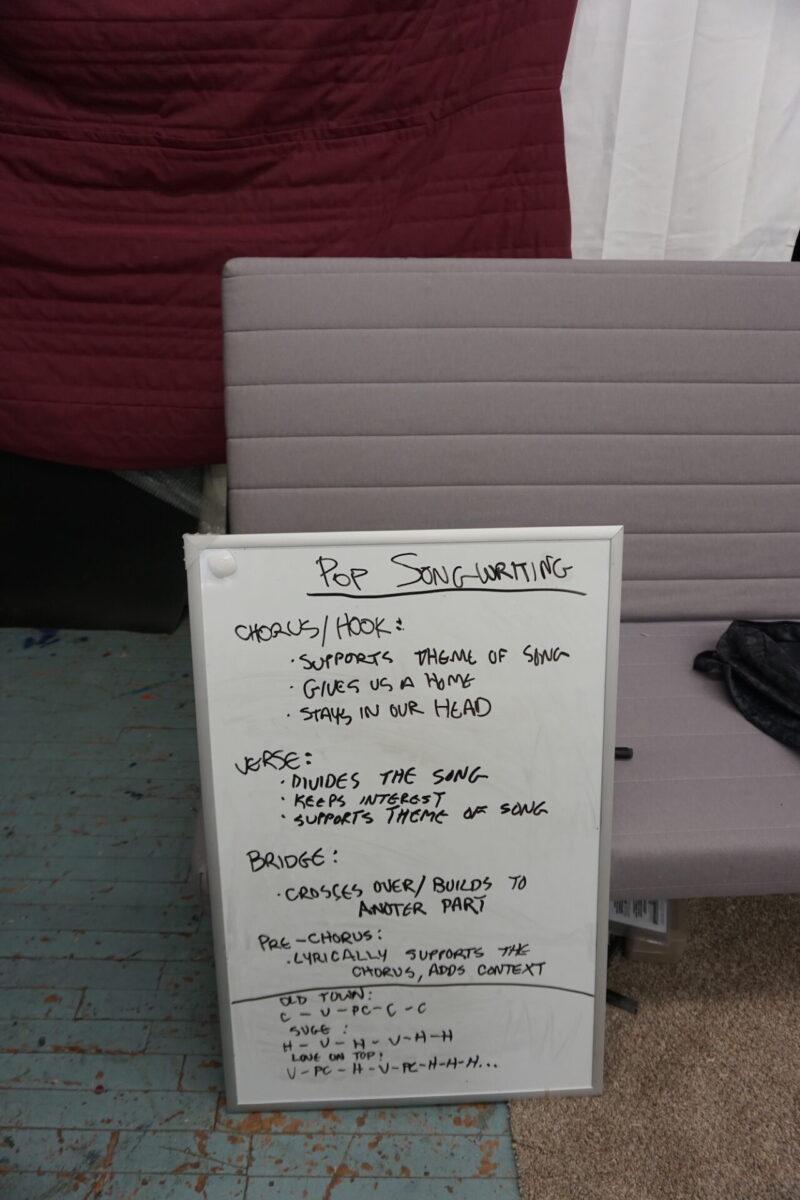 POP SONGWRITING
CHORUS/HOOK:
· SUPPORTS THEME OF SONG
· GIVES US A HOME
· STAYS IN OUR HEAD
VERSE:
· DIVIDES THE SONG
· KEEPS INTEREST
· SUPPORTS THEME OF SONG
BRIDGE:
· CROSSES OVER/BUILDS TO
ANOTER PART
PRE-CHORUS:
· LYRICALLY SUPPORTS THE
CHORUS, ADDS CONTEXT
OLD TOWN:
C - V - PC - C - C
SUGE:
H - V - H - V - H - H
LOVE ON TOP:
V - PC - H - V - PC - H - H - H...